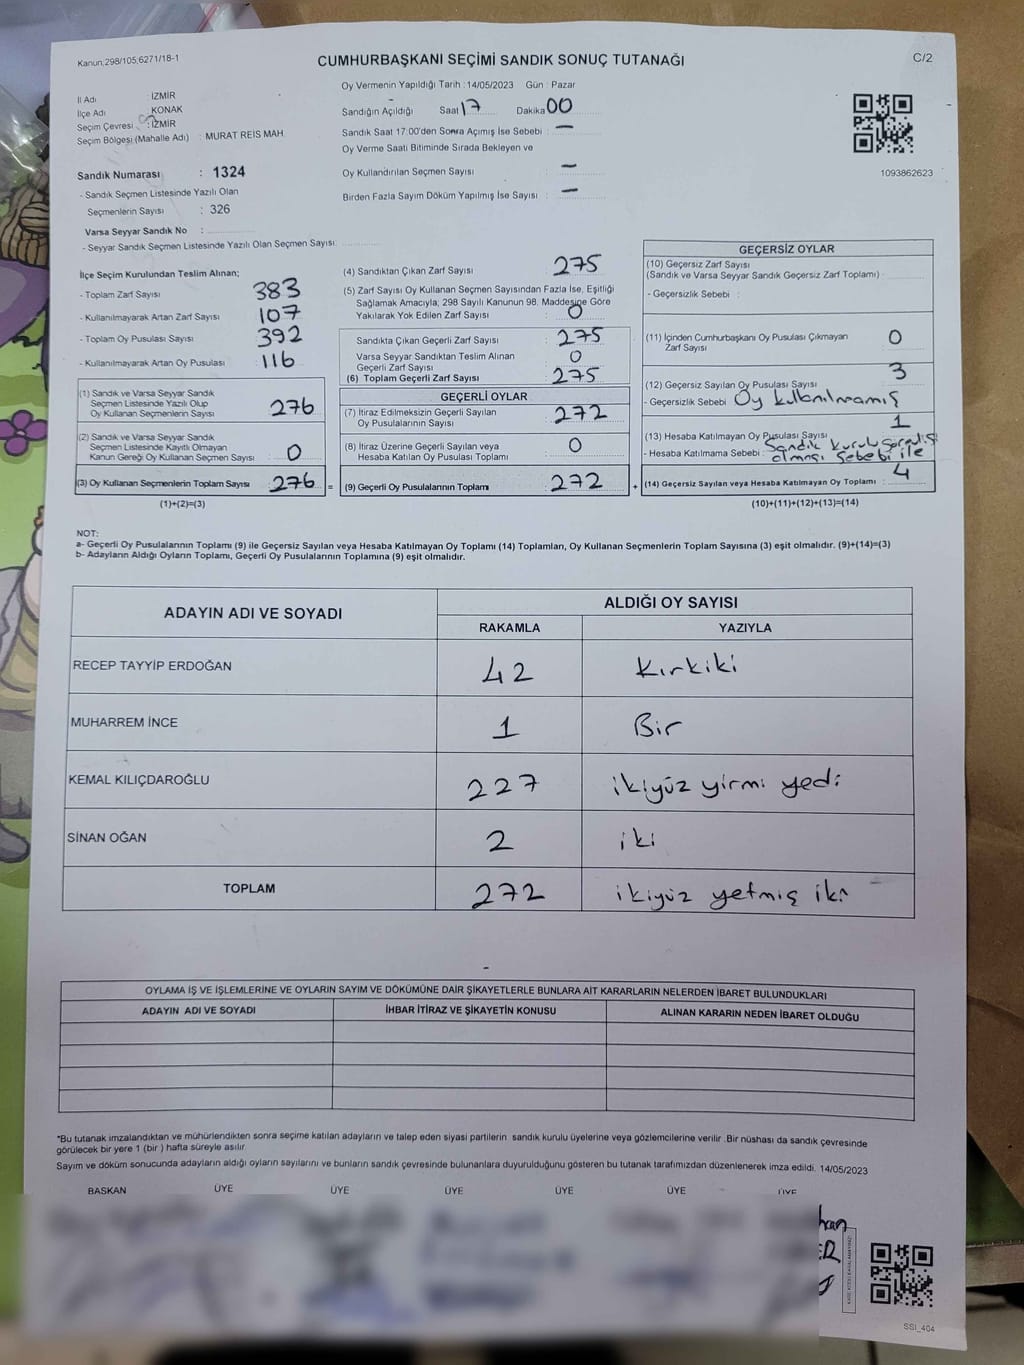 Kanun,298/105;6271/18-1
CUMHURBAŞKANI SEÇİMİ SANDIK SONUÇ TUTANAĞI
C/2
Oy Vermenin Yapıldığı Tarih : 14/05/2023 Gün : Pazar
İl Adı : İZMİR
İlçe Adı : KONAK
Seçim Çevresi : İZMİR
Seçim Bölgesi (Mahalle Adı) : MURAT REİS MAH.
Sandığın Açıldığı Saat 17 Dakika 00
Sandık Saat 17:00'den Sonra Açımış İse Sebebi : —
Oy Verme Saati Bitiminde Sırada Bekleyen ve
Oy Kullandırılan Seçmen Sayısı : —
Birden Fazla Sayım Döküm Yapılmış İse Sayısı : —
1093862623
Sandık Numarası : 1324
- Sandık Seçmen Listesinde Yazılı Olan
Seçmenlerin Sayısı : 326
Varsa Seyyar Sandık No :
- Seyyar Sandık Seçmen Listesinde Yazılı Olan Seçmen Sayısı:
İlçe Seçim Kurulundan Teslim Alınan;
- Toplam Zarf Sayısı 383
- Kullanılmayarak Artan Zarf Sayısı 107
- Toplam Oy Pusulası Sayısı 392
- Kullanılmayarak Artan Oy Pusulası 116
(1) Sandık ve Varsa Seyyar Sandık
Seçmen Listesinde Yazılı Olup
Oy Kullanan Seçmenlerin Sayısı : 276
(2) Sandık ve Varsa Seyyar Sandık
Seçmen Listesinde Kayıtlı Olmayan
Kanun Gereği Oy Kullanan Seçmen Sayısı : 0
(3) Oy Kullanan Seçmenlerin Toplam Sayısı : 276 =
(1)+(2)=(3)
(4) Sandıktan Çıkan Zarf Sayısı : 275
(5) Zarf Sayısı Oy Kullanan Seçmen Sayısından Fazla İse, Eşitliği
Sağlamak Amacıyla; 298 Sayılı Kanunun 98. Maddesine Göre
Yakılarak Yok Edilen Zarf Sayısı : 0
Sandıkta Çıkan Geçerli Zarf Sayısı : 275
Varsa Seyyar Sandıktan Teslim Alınan
Geçerli Zarf Sayısı : 0
(6) Toplam Geçerli Zarf Sayısı : 275
GEÇERLİ OYLAR
(7) İtiraz Edilmeksizin Geçerli Sayılan
Oy Pusulasının Sayısı : 272
(8) İtiraz Üzerine Geçerli Sayılan veya
Hesaba Katılan Oy Pusulası Toplamı : 0
(9) Geçerli Oy Pusulalarının Toplamı : 272 +
GEÇERSİZ OYLAR
(10) Geçersiz Zarf Sayısı
(Sandık ve Varsa Seyyar Sandık Geçersiz Zarf Toplamı) :
- Geçersizlik Sebebi :
(11) İçinden Cumhurbaşkanı Oy Pusulası Çıkmayan
Zarf Sayısı : 0
(12) Geçersiz Sayılan Oy Pusulası Sayısı : 3
- Geçersizlik Sebebi : Oy kullanılmamış
(13) Hesaba Katılmayan Oy Pusulası Sayısı : 1
- Hesaba Katılmama Sebebi : Sandık kurulu
olması sebebi ile
(14) Geçersiz Sayılan veya Hesaba Katılmayan Oy Toplamı : 4
(10)+(11)+(12)+(13)=(14)
NOT:
a- Geçerli Oy Pusulalarının Toplamı (9) ile Geçersiz Sayılan veya Hesaba Katılmayan Oy Toplamı (14) Toplamları, Oy Kullanan Seçmenlerin Toplam Sayısına (3) eşit olmalıdır. (9)+(14)=(3)
b- Adayların Aldığı Oyların Toplamı, Geçerli Oy Pusulalarının Toplamına (9) eşit olmalıdır.
ADAYIN ADI VE SOYADI
ALDIĞI OY SAYISI
RAKAMLA YAZIYLA
RECEP TAYYİP ERDOĞAN 42 Kırkiki
MUHARREM İNCE 1 Bir
KEMAL KILIÇDAROĞLU 227 ikiyüz yirmi yedi
SİNAN OĞAN 2 iki
TOPLAM 272 ikiyüz yetmiş iki
OYLAMA İŞ VE İŞLEMLERİNE VE OYLARIN SAYIM VE DÖKÜMÜNE DAİR ŞİKAYETLERLE BUNLARA AİT KARARLARIN NELERDEN İBARET BULUNDUKLARI
ADAYIN ADI VE SOYADI İHBAR İTİRAZ VE ŞİKAYETİN KONUSU ALINAN KARARIN NEDEN İBARET OLDUĞU
*Bu tutanak imzalandıktan ve mühürlendikten sonra seçime katılan adayların ve talep eden siyasi partilerin sandık kurulu üyelerine veya gözlemcilerine verilir .Bir nüshası da sandık çevresinde
görülecek bir yere 1 (bir ) hafta süreyle asılır.
Sayım ve döküm sonucunda adayların aldığı oyların sayılarını ve bunların sandık çevresinde bulunanlara duyurulduğunu gösteren bu tutanak tarafımızdan düzenlenerek imza edildi. 14/05/2023
BAŞKAN ÜYE ÜYE ÜYE ÜYE ÜYE ÜYE
SSI_404